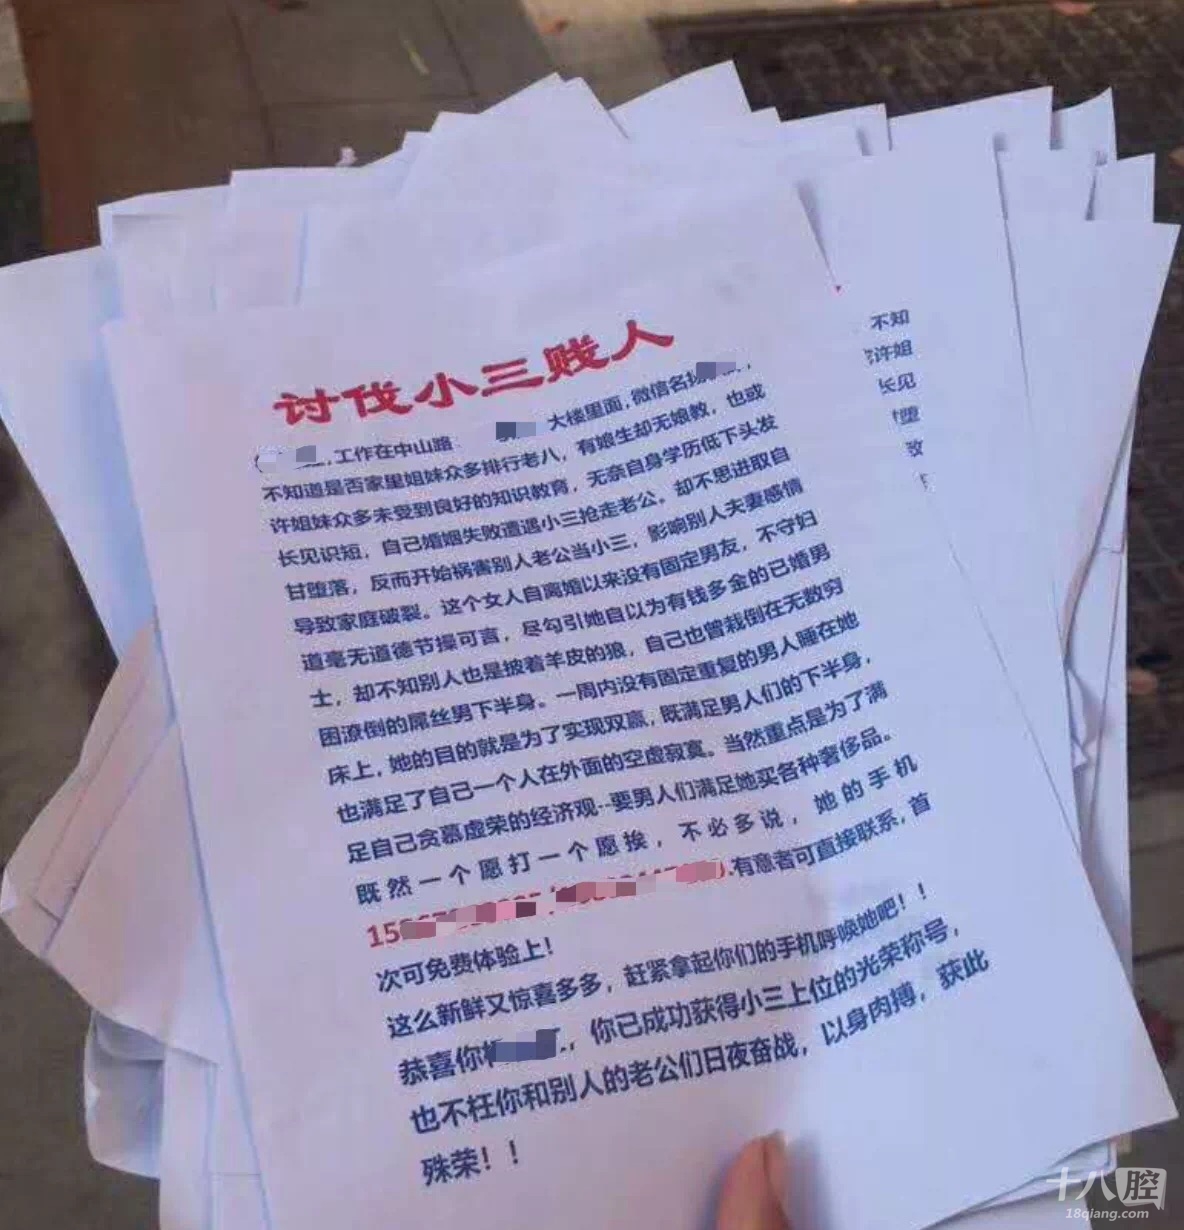 讨伐小三贱人
,工作在中山路 大楼里面,微信名扬
不知道是否家里姐妹众多排行老八，有娘生却无娘教，也或
许姐妹众多未受到良好的知识教育，无奈自身学历低下头发
长见识短，自己婚姻失败遭遇小三抢走老公。却不思进取自
甘堕落，反而开始祸害别人老公当小三，影响别人夫妻感情
导致家庭破裂。这个女人自离婚以来没有固定男友，不守妇
道毫无道德节操可言，尽勾引她自以为有钱多金的已婚男
士，却不知别人也是披着羊皮的狼，自己也曾栽倒在无数穷
困潦倒的屌丝男下半身。一周内没有固定重复的男人睡在她
床上，她的目的就是为了实现双赢，既满足男人们的下半身，
也满足了自己一个人在外面的空虚寂寞。当然重点是为了满
足自己贪慕虚荣的经济观--要男人们满足她买各种奢侈品。
既然一个愿打一个愿挨，不必多说，她的手机
有意者可直接联系，首
次可免费体验上！
这么新鲜又惊喜多多，赶紧拿起你们的手机呼唤她吧！！
恭喜你 ，你已成功获得小三上位的光荣称号，
也不枉你和别人的老公们日夜奋战，以身肉搏，获此
殊荣！！
不知
许姐
长见
堕
十八腔
18qiang.com